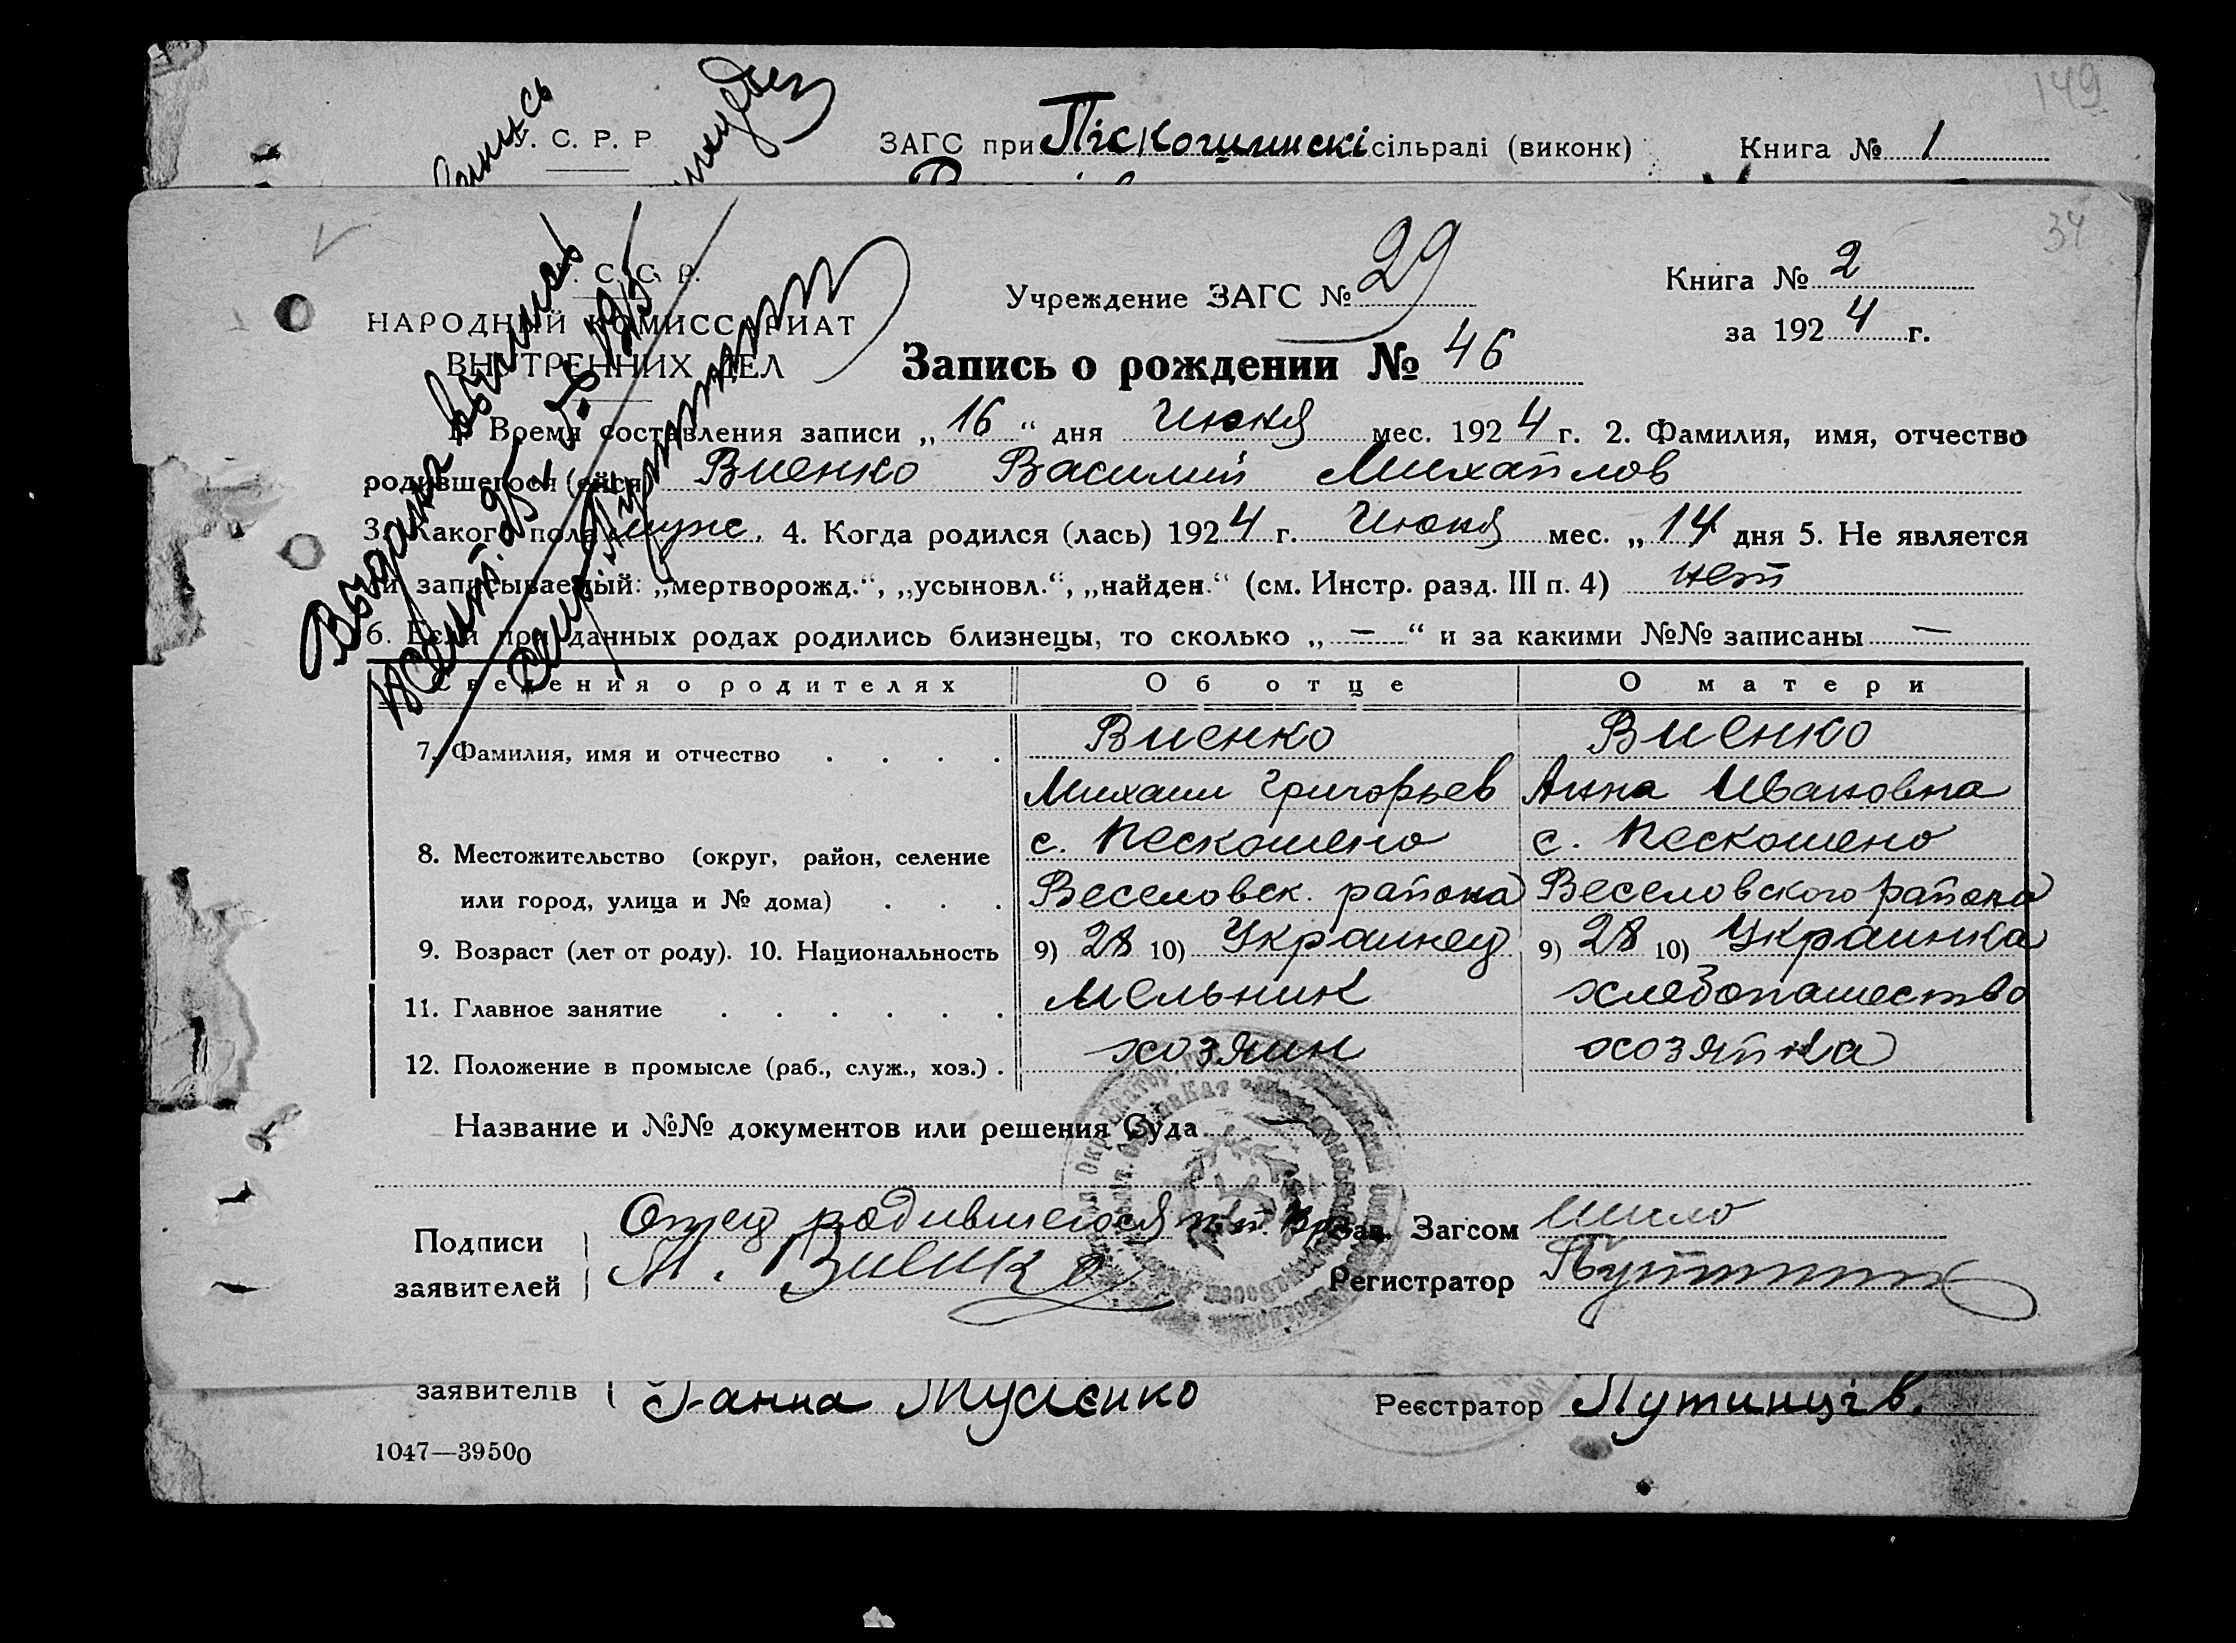 149
У. С. Р. Р
ЗАГС при Піскошинскі сільраді (виконк)
Книга № 1
34
У. С. С. Р.
НАРОДНЫЙ КОМИССАРИАТ
ВНУТРЕННИХ ДЕЛ
Учреждение ЗАГС № 29
Книга № 2
за 1924 г.
Запись о рождении № 46
Выдана выпись
1. Время составления записи „16“ дня Июня мес. 1924 г. 2. Фамилия, имя, отчество
родившегося (ейся) Виенко Василий Михайлов
3. Какого пола муж. 4. Когда родился (лась) 1924 г. Июня мес. „14 дня 5. Не является
ли записываемый: „мертворожд.“, „усыновл.“, „найден.“ (см. Инстр. разд. III п. 4) нет
6. Если при данных родах родились близнецы, то сколько „ — “ и за какими №№ записаны —
Сведения о родителях Об отце О матери
7. Фамилия, имя и отчество . . . . Виенко Виенко
Михаил Григорьев Анна Ивановна
8. Местожительство (округ, район, селение с. Пескошено с. Пескошено
или город, улица и № дома) . . . Веселовск. района Веселовского района
9. Возраст (лет от роду). 10. Национальность 9) 28 10) Украинец 9) 28 10) Украинка
11. Главное занятие . . . . . . Мельник хлебопашество
12. Положение в промысле (раб., служ., хоз.) . хозяин хозяйка
Название и №№ документов или решения Суда —
Подписи заявителей
Отец родившегося
М. Виенко
Зав. Загсом Шило
Регистратор
заявителів Ганна Мусієнко
Реєстратор Путинців.
1047—39500